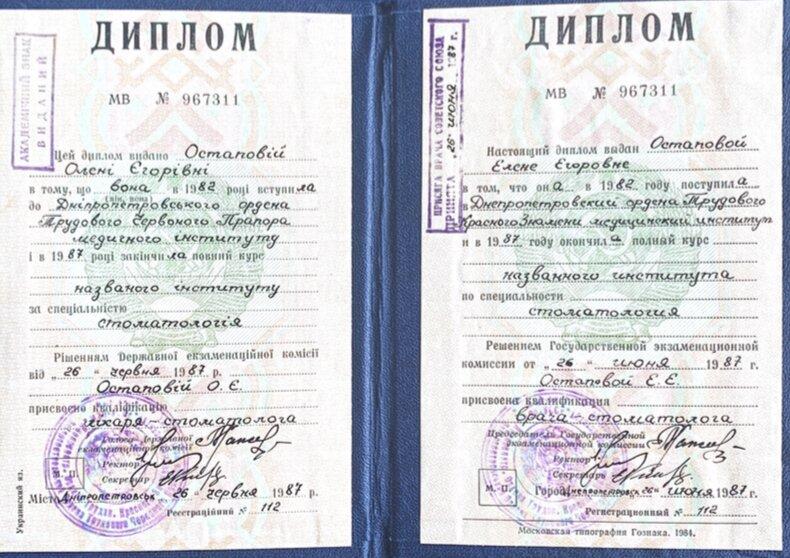 АКАДЕМІЧНИЙ ЗНАК
ВИДАНИЙ
ДИПЛОМ
МВ № 967311
Цей диплом видано Остаповій
Олені Єгорівні
в тому, що вона в 1982 році вступила
(він, вона)
до Дніпропетровського ордена
Трудового Червоного Прапора
медичного інституту
і в 1987 році закінчила повний курс
названого інституту
за спеціальністю
стоматологія
Рішенням Державної екзаменаційної комісії
від „26“ червня 1987 р.
Остаповій О.Є.
присвоєно кваліфікацію
лікаря-стоматолога
Голова Державної
екзаменаційної комісії
Ректор
Секретар
М. П.
Місто Дніпропетровськ „26“ червня 1987 р.
Реєстраційний № 112
Украинский яз.
ПРИСЯГА ВРАЧА СОВЕТСКОГО СОЮЗА
ПРИНЯТА „26“ июня 1987 г.
ДИПЛОМ
МВ № 967311
Настоящий диплом выдан Остаповой
Елене Егоровне
в том, что она в 1982 году поступила
в Днепропетровский ордена Трудового
Красного Знамени медицинский институт
и в 1987 году окончила полный курс
названного института
по специальности
стоматология
Решением Государственной экзаменационной
комиссии от „26“ июня 1987 г.
Остаповой Е.Е.
присвоена квалификация
врача-стоматолога
Председатель Государственной
экзаменационной комиссии
Ректор
Секретарь
М. П.
Город Днепропетровск „26“ июня 1987 г.
Регистрационный № 112
Московская типография Гознака. 1984.